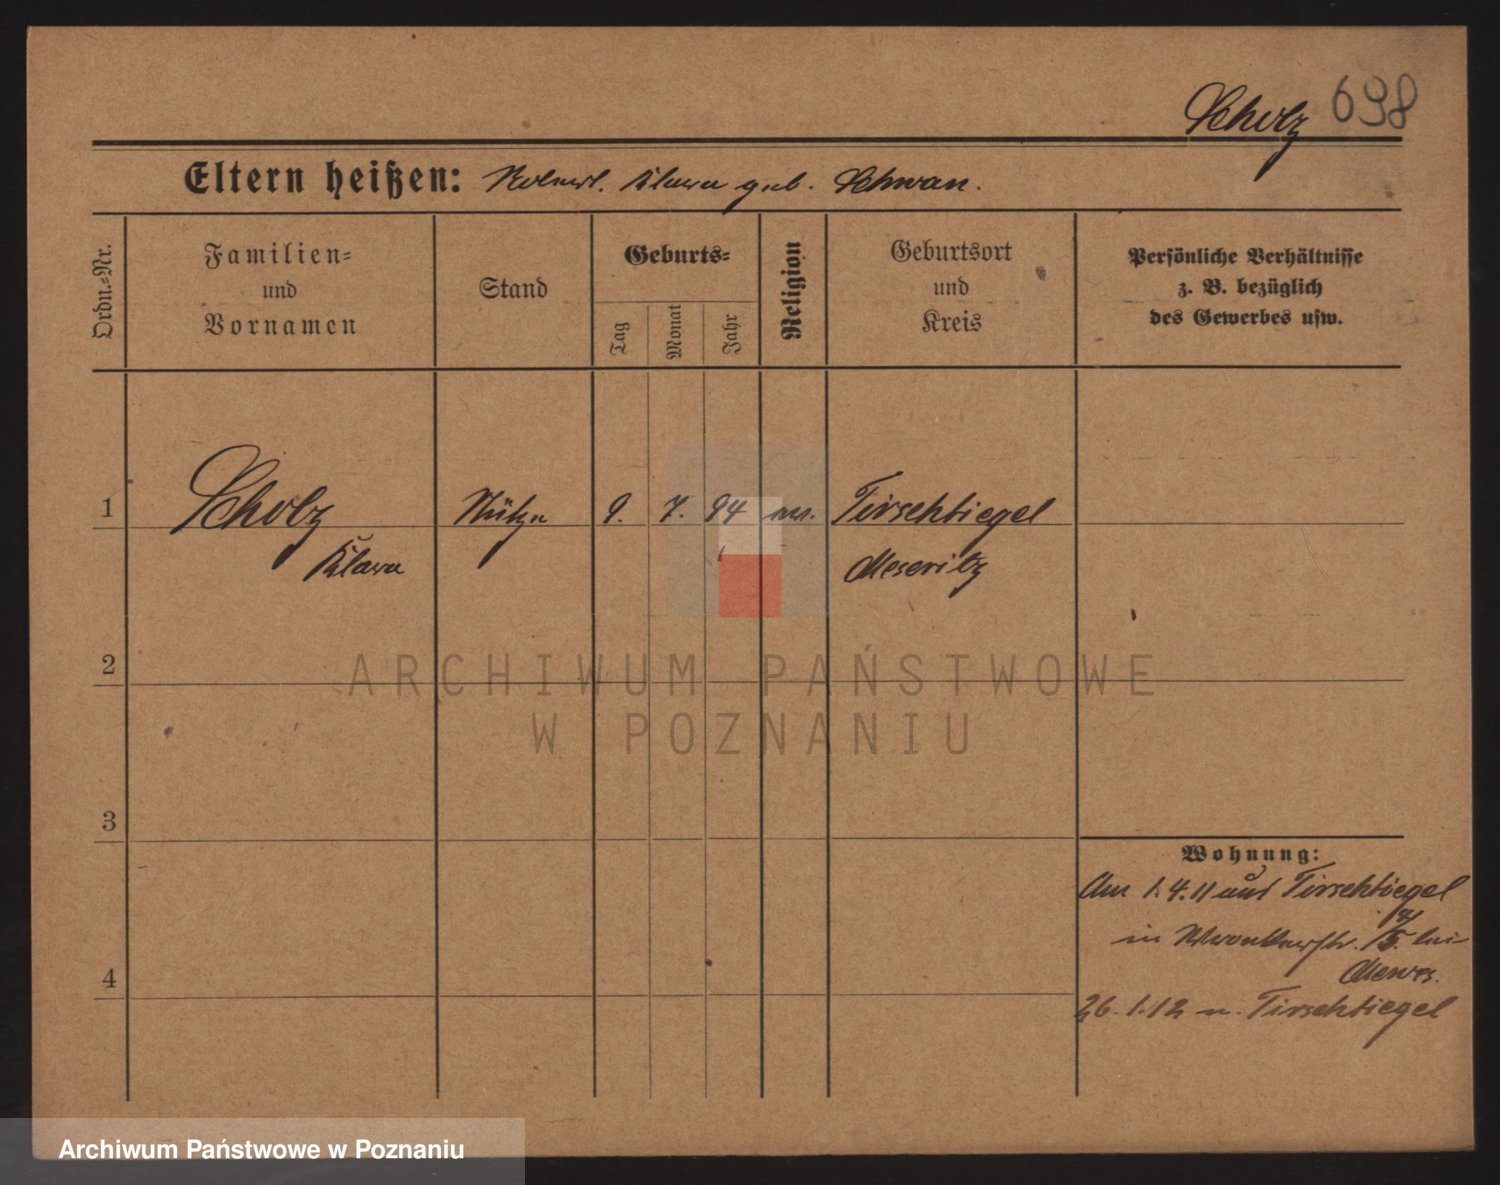 Scholz 698
Eltern heißen: Klara geb. Schwan.
Ordn.-Nr.
Familien-
und
Vornamen
Stand
Geburts-
Tag
Monat
Jahr
Religion
Geburtsort
und
Kreis
Persönliche Verhältnisse
z. B. bezüglich
des Gewerbes usw.
1 Scholz 9. 7. 94 Tirschtiegel
Klara Meseritz
2
3
4
Wohnung:
Am 1.4.11 aus Tirschtiegel
in 5. bei
Mewes.
26.1.12 n. Tirschtiegel
ARCHIWUM PAŃSTWOWE
W POZNANIU
Archiwum Państwowe w Poznaniu